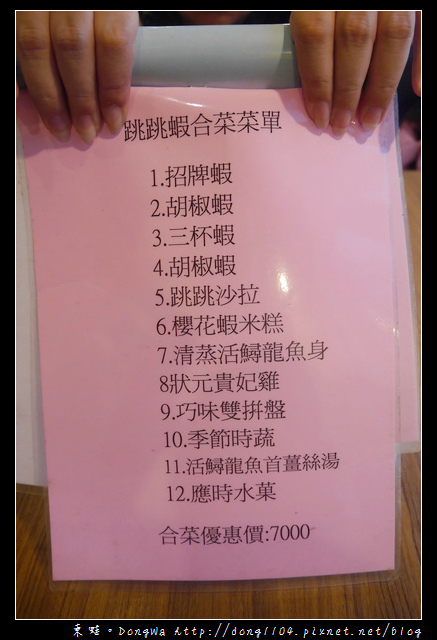 跳跳蝦合菜菜單
1.招牌蝦
2.胡椒蝦
3.三杯蝦
4.胡椒蝦
5.跳跳沙拉
6.櫻花蝦米糕
7.清蒸活鱘龍魚身
8狀元貴妃雞
9.巧味雙拼盤
10.季節時蔬
11.活鱘龍魚首薑絲湯
12.應時水菓
合菜優惠價:7000
東蛙。DongWa http://dong1104.pixnet.net/blog